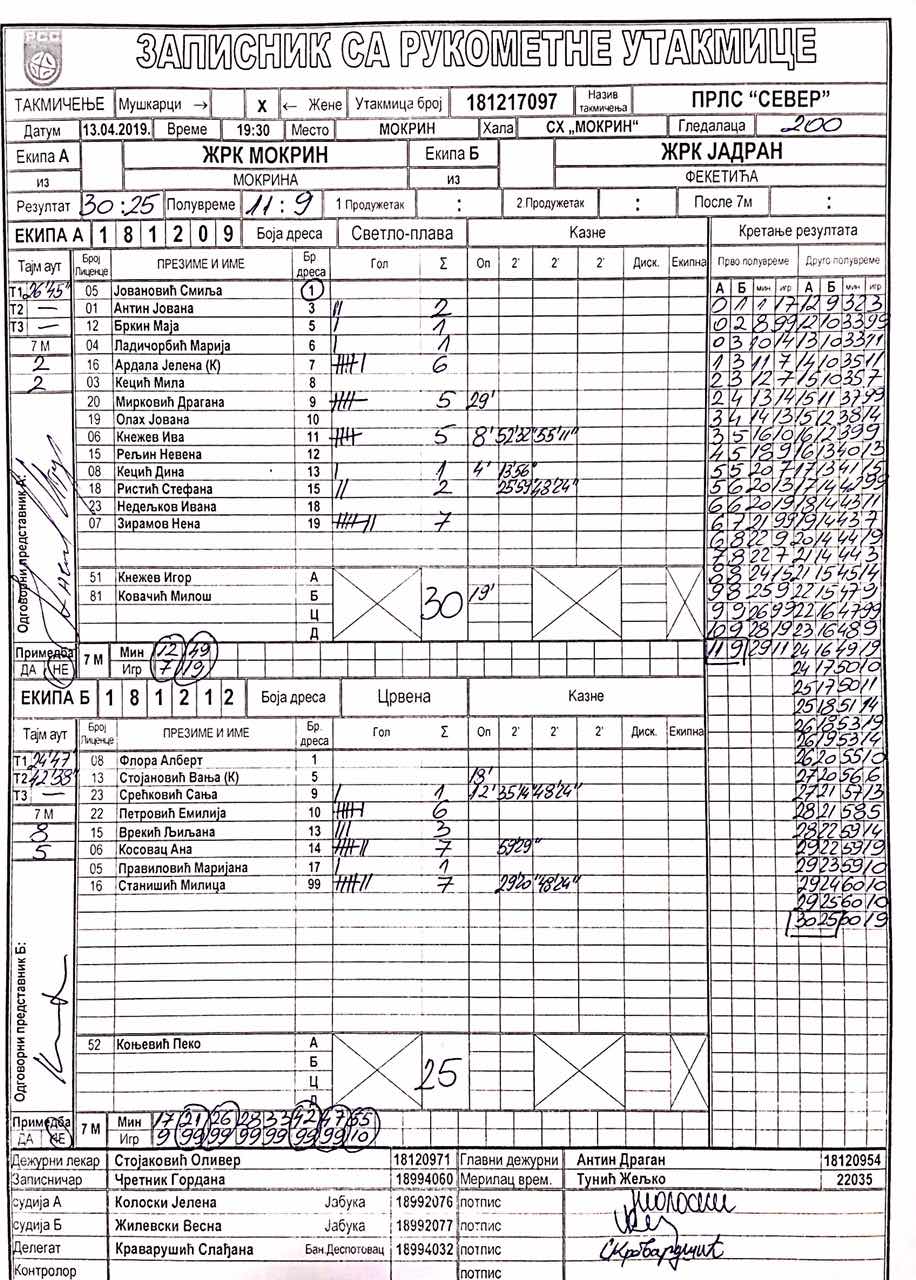 РСС
ЗАПИСНИК СА РУКОМЕТНЕ УТАКМИЦЕ
ТАКМИЧЕЊЕ Мушкарци → X ← Жене Утакмица број 181217097 Назив такмичења ПРЛС “СЕВЕР”
Датум 13.04.2019. Време 19:30 Место МОКРИН Хала СХ „МОКРИН“ Гледалаца 200
Екипа А ЖРК МОКРИН Екипа Б ЖРК ЈАДРАН
из МОКРИНА из ФЕКЕТИЋА
Резултат 30:25 Полувреме 11:9 1 Продужетак : 2.Продужетак : После 7м :
ЕКИПА А 1 8 1 2 0 9 Боја дреса Светло-плава Казне Кретање резултата
Тајм аут Број Лиценце ПРЕЗИМЕ И ИМЕ Бр дреса Гол Σ Оп 2' 2' 2' Диск. Екипна Прво полувреме Друго полувреме
А Б мин игр А Б мин игр
Т1 26'45" 05 Јовановић Смиља 1
Т2 — 01 Антин Јована 3 || 2
Т3 — 12 Бркин Маја 5 | 1
7 М 04 Ладичорбић Марија 6 | 1
2 16 Ардала Јелена (К) 7 6
2 03 Кецић Мила 8
20 Мирковић Драгана 9 5 29'
19 Олах Јована 10
06 Кнежев Ива 11 5 8' 52'32" 55'11"
15 Рељин Невена 12
08 Кецић Дина 13 | 1 4' 13'56"
18 Ристић Стефана 15 || 2 25'59" 48'24"
23 Недељков Ивана 18
07 Зирамов Нена 19 7
Одговорни представник А:
51 Кнежев Игор А
81 Ковачић Милош Б 30 19'
Ц
Д
Примедба ДА НЕ 7 М Мин 12 49
Игр 7 19
0 1 1 17 12 9 32 3
0 2 8 99 12 10 33 99
0 3 10 14 13 10 33 11
1 3 11 7 14 10 35 11
2 3 12 7 15 10 35 7
2 4 13 14 15 11 37 99
3 4 14 13 15 12 38 14
3 5 16 10 16 12 39 9
4 5 18 9 16 13 40 13
5 5 20 7 17 13 41 15
5 6 20 13 17 14 42 99
6 6 20 19 18 14 43 11
6 7 21 99 19 14 43 7
6 8 22 9 20 14 44 19
7 8 22 7 21 14 44 3
8 8 24 15 21 15 45 14
9 8 25 9 22 15 47 9
9 9 26 99 22 16 47 99
10 9 28 19 23 16 48 9
11 9 29 11 24 16 49 19
24 17 50 10
25 17 50 11
25 18 51 14
26 18 53 19
26 19 53 14
26 20 55 10
27 20 56 6
27 21 57 13
28 21 58 5
28 22 59 14
29 22 59 19
29 23 59 10
29 24 60 10
29 25 60 10
30 25 60 19
ЕКИПА Б 1 8 1 2 1 2 Боја дреса Црвена Казне
Тајм аут Број Лиценце ПРЕЗИМЕ И ИМЕ Бр. дреса Гол Σ Оп 2' 2' 2' Диск. Екипна
Т1 24'47" 08 Флора Алберт 1
Т2 42'38" 13 Стојановић Вања (К) 5 13'
Т3 — 23 Срећковић Сања 9 | 1 12' 35'14" 48'24"
7 М 22 Петровић Емилија 10 6
8 15 Врекић Љиљана 13 ||| 3
5 06 Косовац Ана 14 7 59'29"
05 Правиловић Маријана 17 | 1
16 Станишић Милица 99 7 29'20" 48'24"
Одговорни представник Б:
52 Коњевић Пеко А
Б 25
Ц
Д
Примедба ДА НЕ 7 М Мин 17 21 26 28 33 42 47 55
Игр 9 99 99 99 99 99 99 10
Дежурни лекар Стојаковић Оливер 18120971 Главни дежурни Антин Драган 18120954
Записничар Чретник Гордана 18994060 Мерилац врем. Тунић Жељко 22035
судија А Колоски Јелена Јабука 18992076 потпис
судија Б Жилевски Весна Јабука 18992077 потпис
Делегат Краварушић Слађана Бан.Деспотовац 18994032 потпис
Контролор потпис